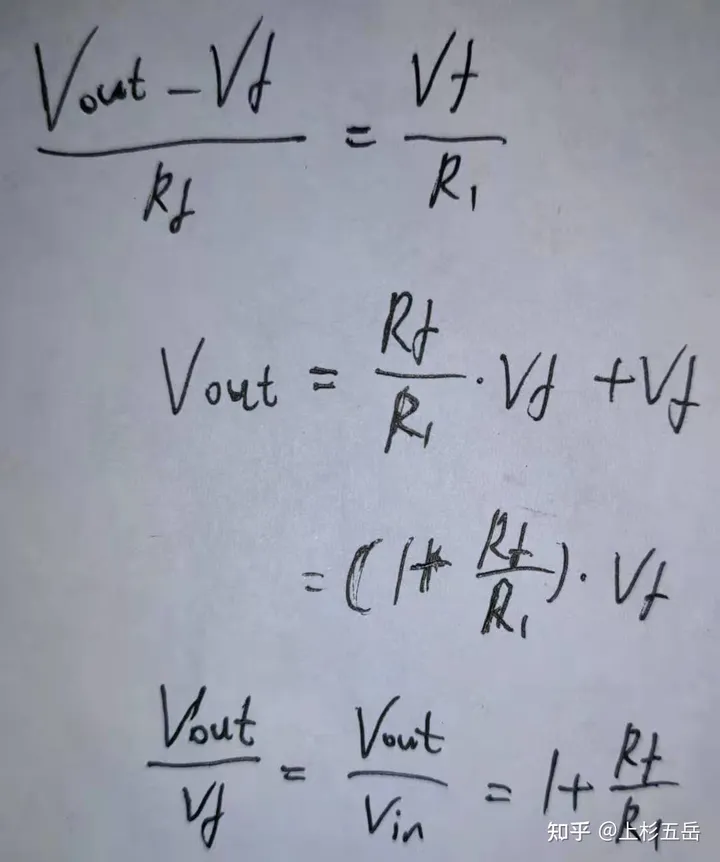 (Vout - Vf) / Rf = Vf / R1
Vout = Rf / R1 · Vf + Vf
= (1 + Rf / R1) · Vf
Vout / Vf = Vout / Vin = 1 + Rf / R1
知乎 @上杉五岳